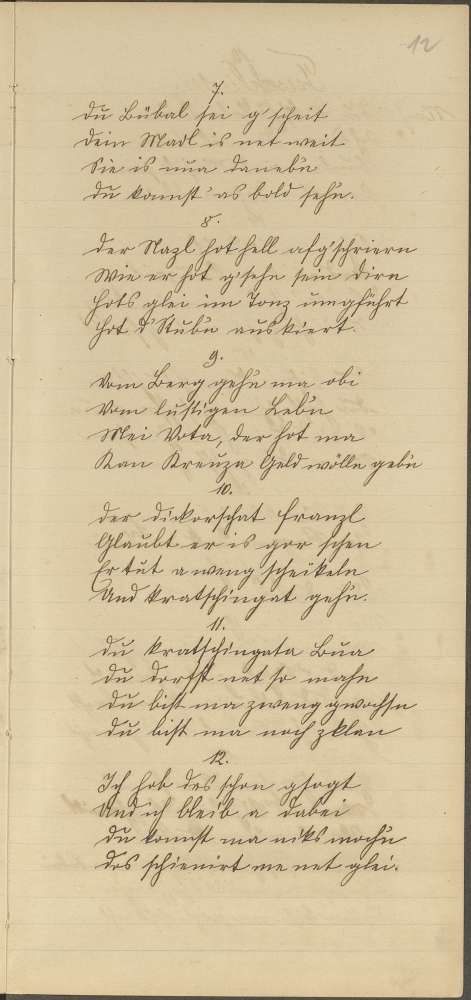 12
7.
Du Bübal sei g'scheit
Dein Madl is net weit
Sie is nua danebn
Du kannst' as bold sehn.
8.
Der Nazl hot hell afg'schriern
Wie er hot g'sehn sein Dirn
Hots glei im Tonz umgführt
Hot d'Stubn auskiert.
9.
Vom Berg gehn ma obi
Vom lustigen Lebn
Mei Vota, der hot ma
Kan Kreuza Geld wölln gebn
10.
Der dickorschat Franzl
Glaubt er is gor schen
Er tut a weng scheikeln
Und kratschingat gehn.
11.
Du kratschingata Bua
Du dorfst net so mahn
Du bist ma zweng gwochsn
Du bist ma noch zklan
12.
Ich hob des schon gsogt
Und ich bleib a dabei
Du kannst ma niks mochn
Dos schienirt me net glei.